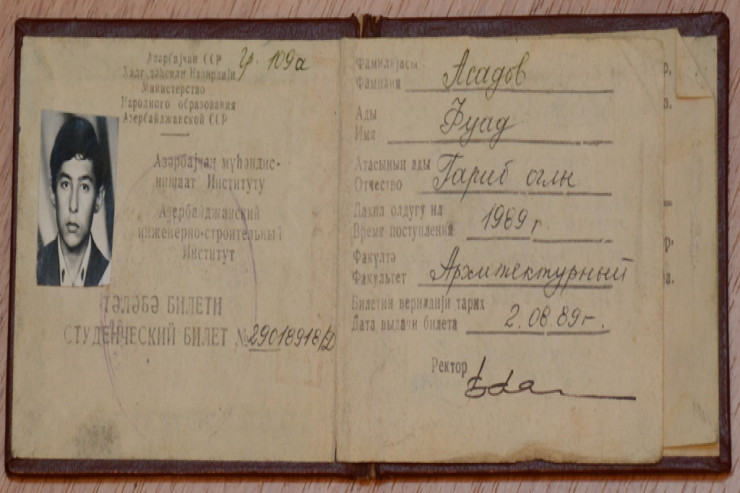 Азәрбајҹан ССР
Халг тәһсили Назирлији
Министерство
Народного образования
Азербайджанской ССР
Гр. 109а
Азәрбајҹан мүһәндис-
иншаат Институту
Азербайджанский
инженерно-строительный
Институт
ТӘЛӘБӘ БИЛЕТИ
СТУДЕНЧЕСКИЙ БИЛЕТ № 29018918/Д
Фамилијасы
Фамилия Асадов
Ады
Имя Фуад
Атасынын ады
Отчество Гариб оглы
Дахил олдуғу ил
Время поступления 1989 г
Факултә
Факультет Архитектурный
Билетин верилдији тарих
Дата выдачи билета 2.08.89 г.
Ректор